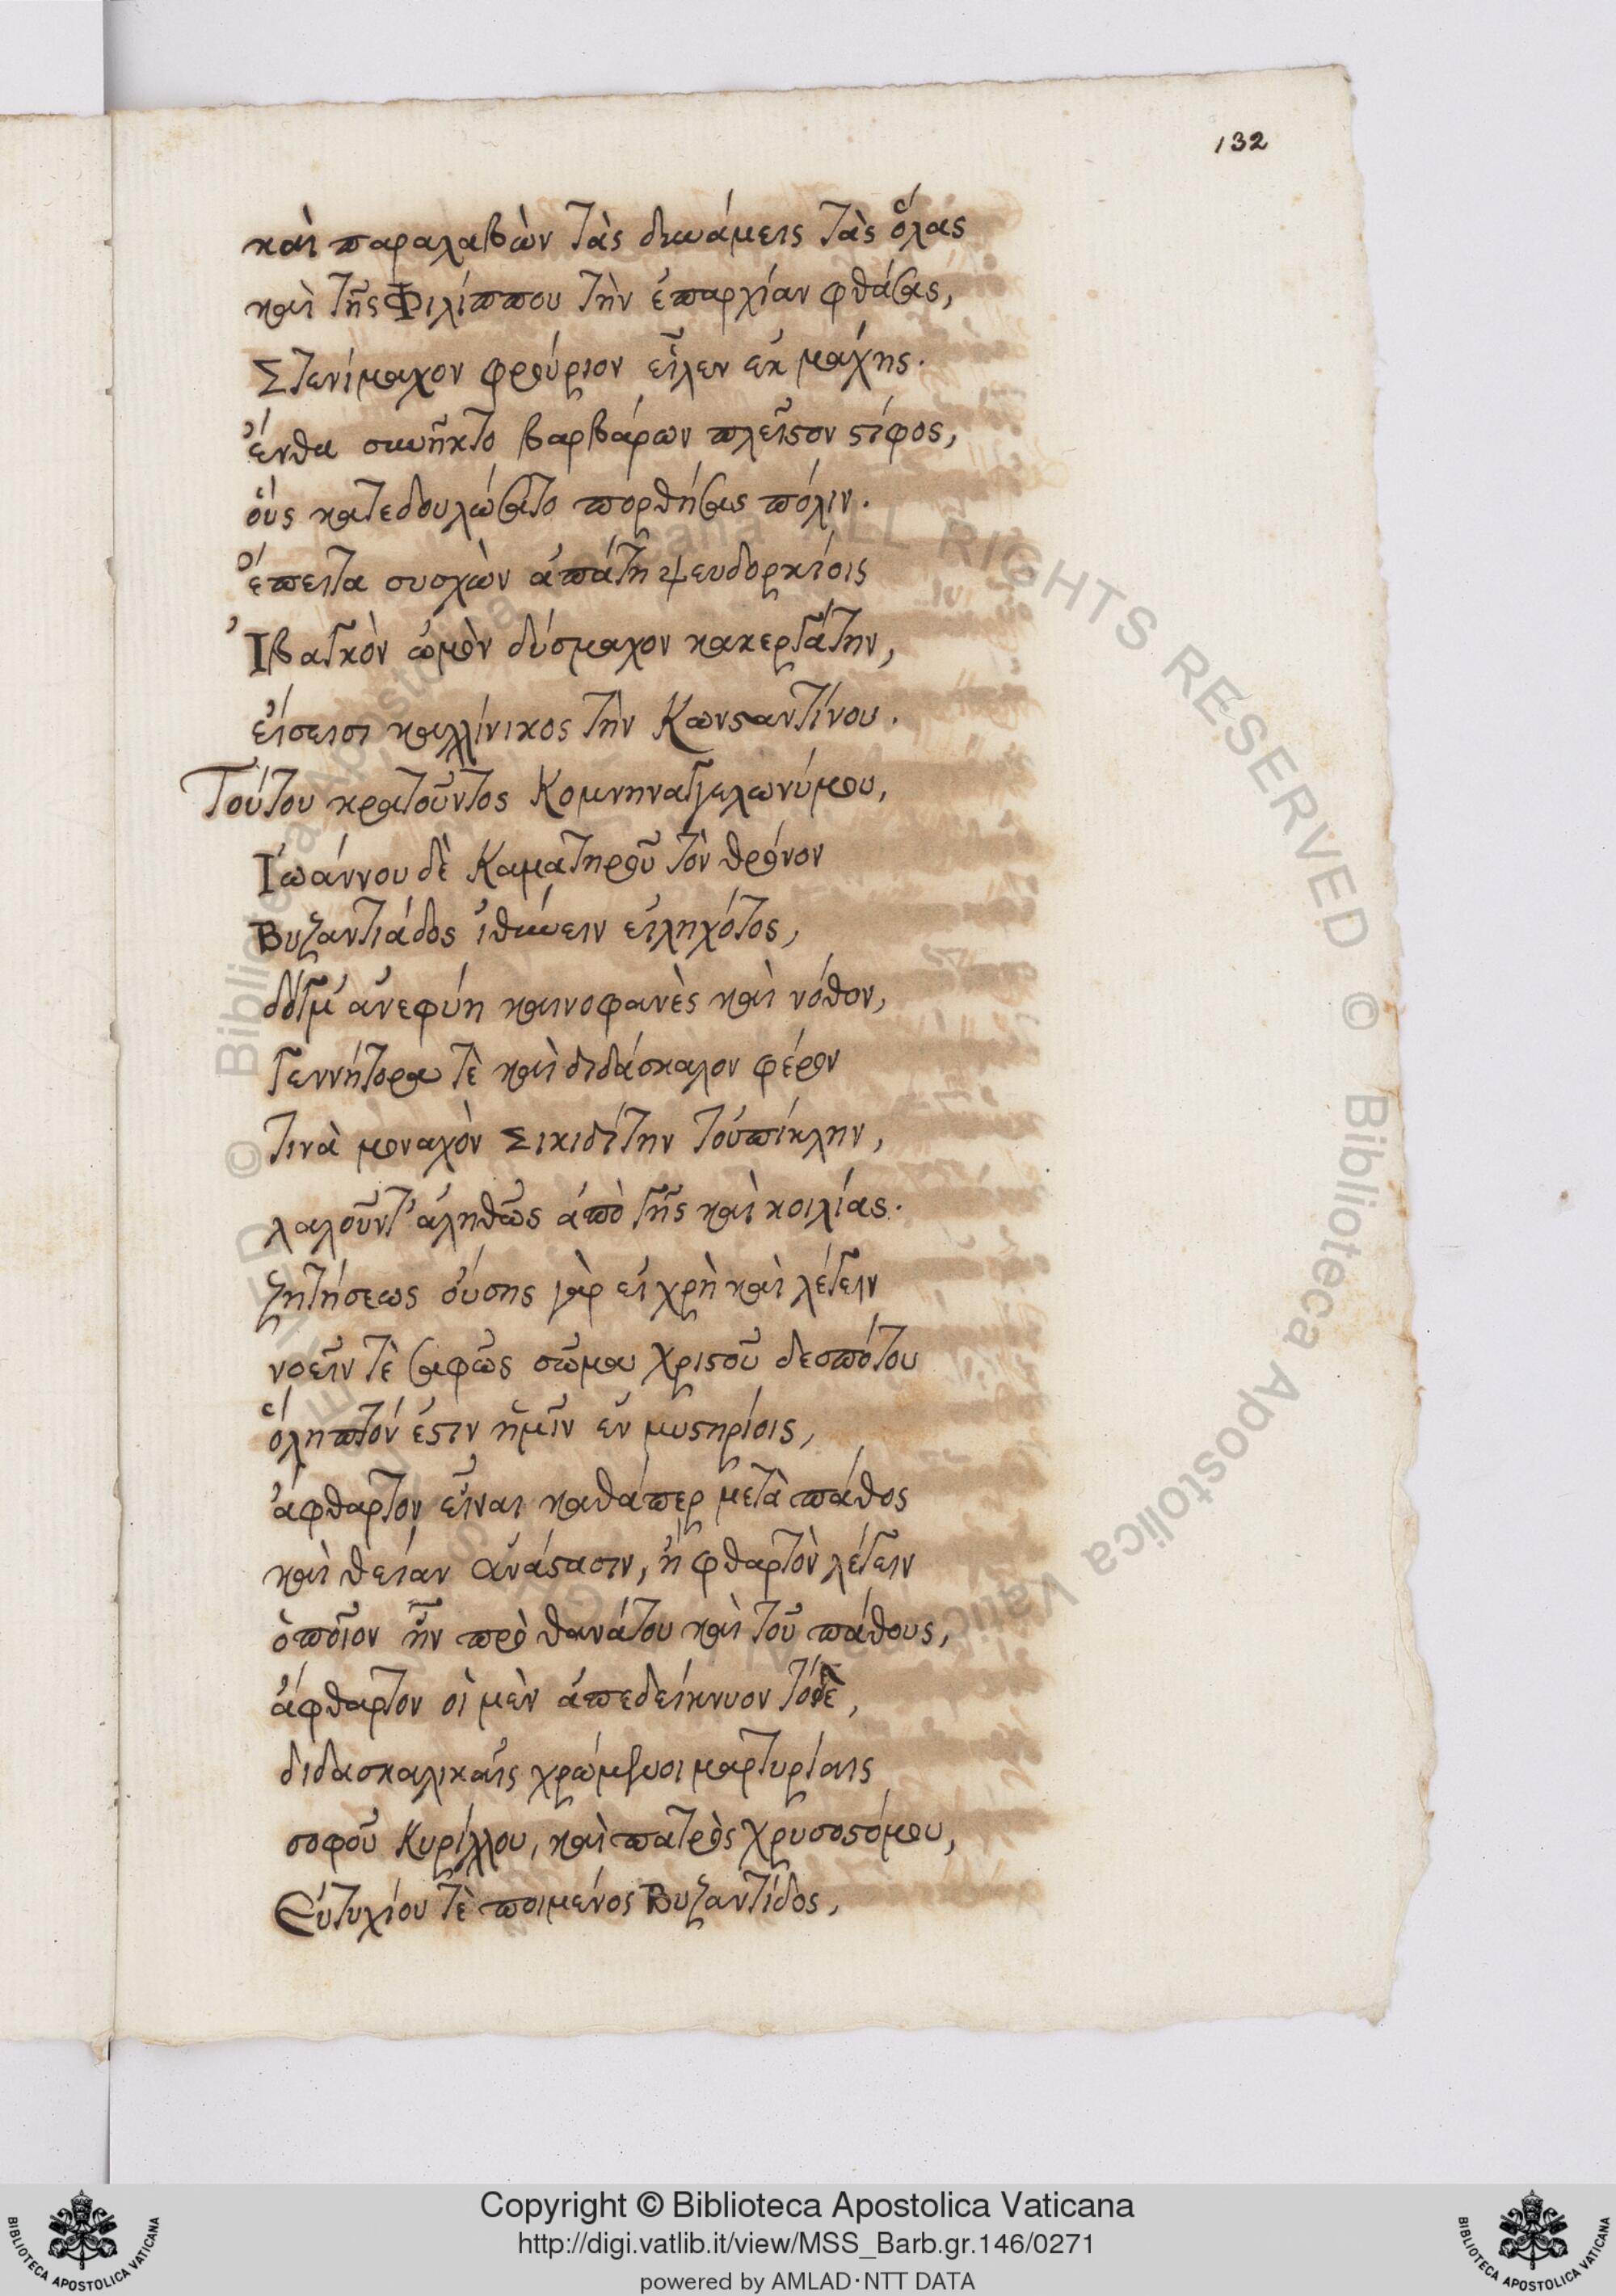 132
καὶ παραλαβὼν τὰς δυνάμεις τὰς ὅλας
καὶ τῆς Φιλίππου τὴν ἐπαρχίαν φθάσας,
Στενίμαχον φρούριον εἷλεν ἐκ μάχης.
ἔνθα συνῆκτο βαρβάρων πλεῖστον στίφος,
οὓς κατεδουλώσατο πορθήσας πόλιν.
ἔπειτα συσχὼν ἀπάτη ψευδορκίοις
Ἰβαγκὸν ὠμὸν δύσμαχον κακεργάτην,
εἴσεισι καλλίνικος τὴν Κωνσταντίνου.
Τούτου κρατοῦντος Κομνηναγγελωνύμου,
Ἰωάννου δὲ Καματηροῦ τὸν θρόνον
Βυζαντιάδος ἰθύνειν εἰληχότος,
δόγμ' ἀνεφύη καινοφανὲς καὶ νόθον,
Γεννήτορα τὲ καὶ διδάσκαλον φέρον
τινὰ μοναχὸν Σικιδίτην τοὐπίκλην,
λαλοῦντ' ἀληθῶς ἀπὸ γῆς καὶ κοιλίας.
ζητήσεως οὔσης γὰρ εἰ χρὴ καὶ λέγειν
νοεῖν τὲ σαφῶς σῶμα χριστοῦ δεσπότου
ὁληπτόν ἐστιν ἡμῖν ἐν μυστηρίοις,
ἄφθαρτον εἶναι καθάπερ μετὰ πάθος
καὶ θείαν ἀνάστασιν, ἢ φθαρτὸν λέγειν
ὁποῖον ἦν πρὸ θανάτου καὶ τοῦ πάθους,
ἄφθαρτον οἱ μὲν ἀπεδείκνυον τόδε,
διδασκαλικαῖς χρώμενοι μαρτυρίαις
σοφοῦ Κυρίλλου, καὶ πατρὸς χρυσοστόμου,
Εὐτυχίου τὲ ποιμένος Βυζαντίδος,
© Biblioteca Apostolica Vaticana ALL RIGHTS RESERVED © Biblioteca Apostolica Vaticana
Copyright © Biblioteca Apostolica Vaticana
http://digi.vatlib.it/view/MSS_Barb.gr.146/0271
powered by AMLAD·NTT DATA
BIBLIOTECA APOSTOLICA VATICANA
BIBLIOTECA APOSTOLICA VATICANA